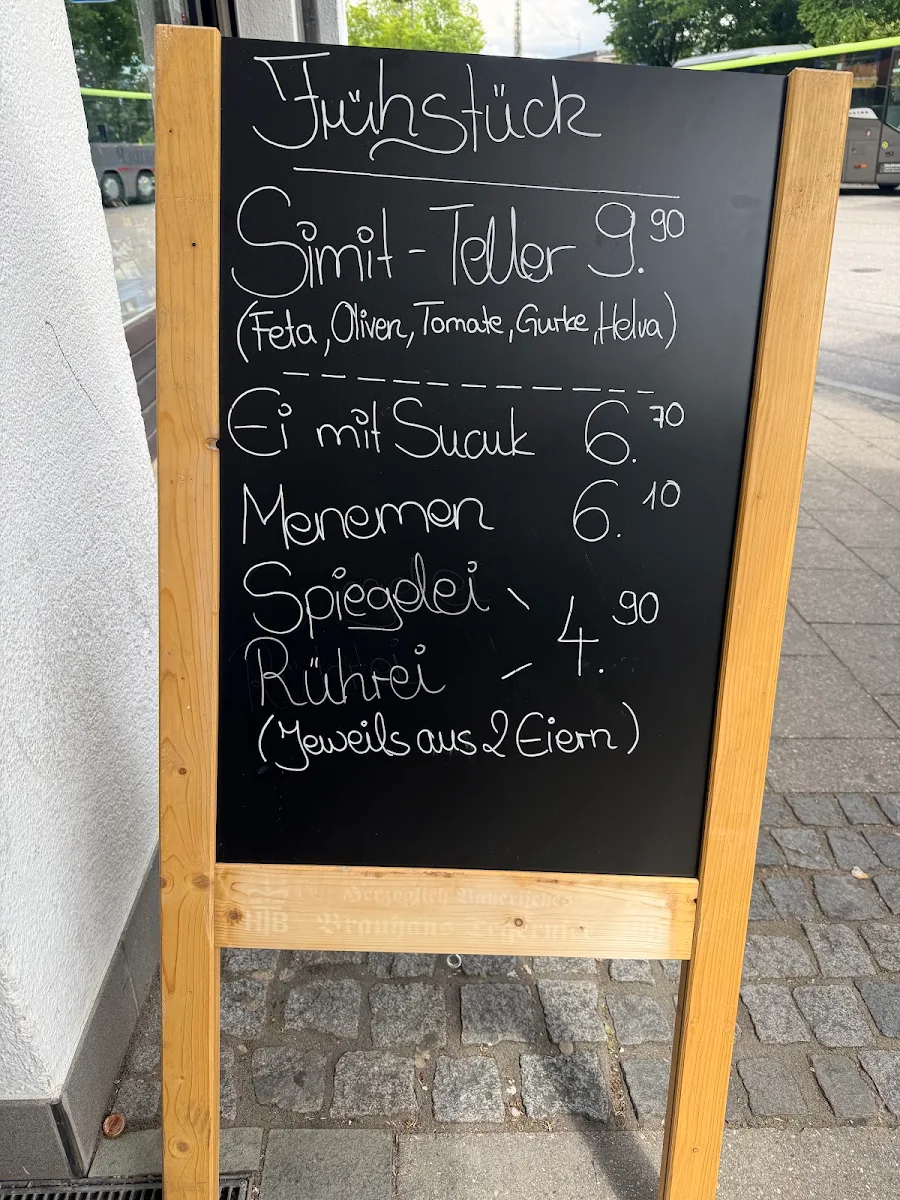 Frühstück
Simit-Teller 9.90
(Feta, Oliven, Tomate, Gurke, Helva)
Ei mit Sucuk 6.70
Menemen 6.10
Spiegelei
4.90
Rührei
(Jeweils aus 2 Eiern)
Herzoglich Bayerisches
HB Brauhaus Tegernsee